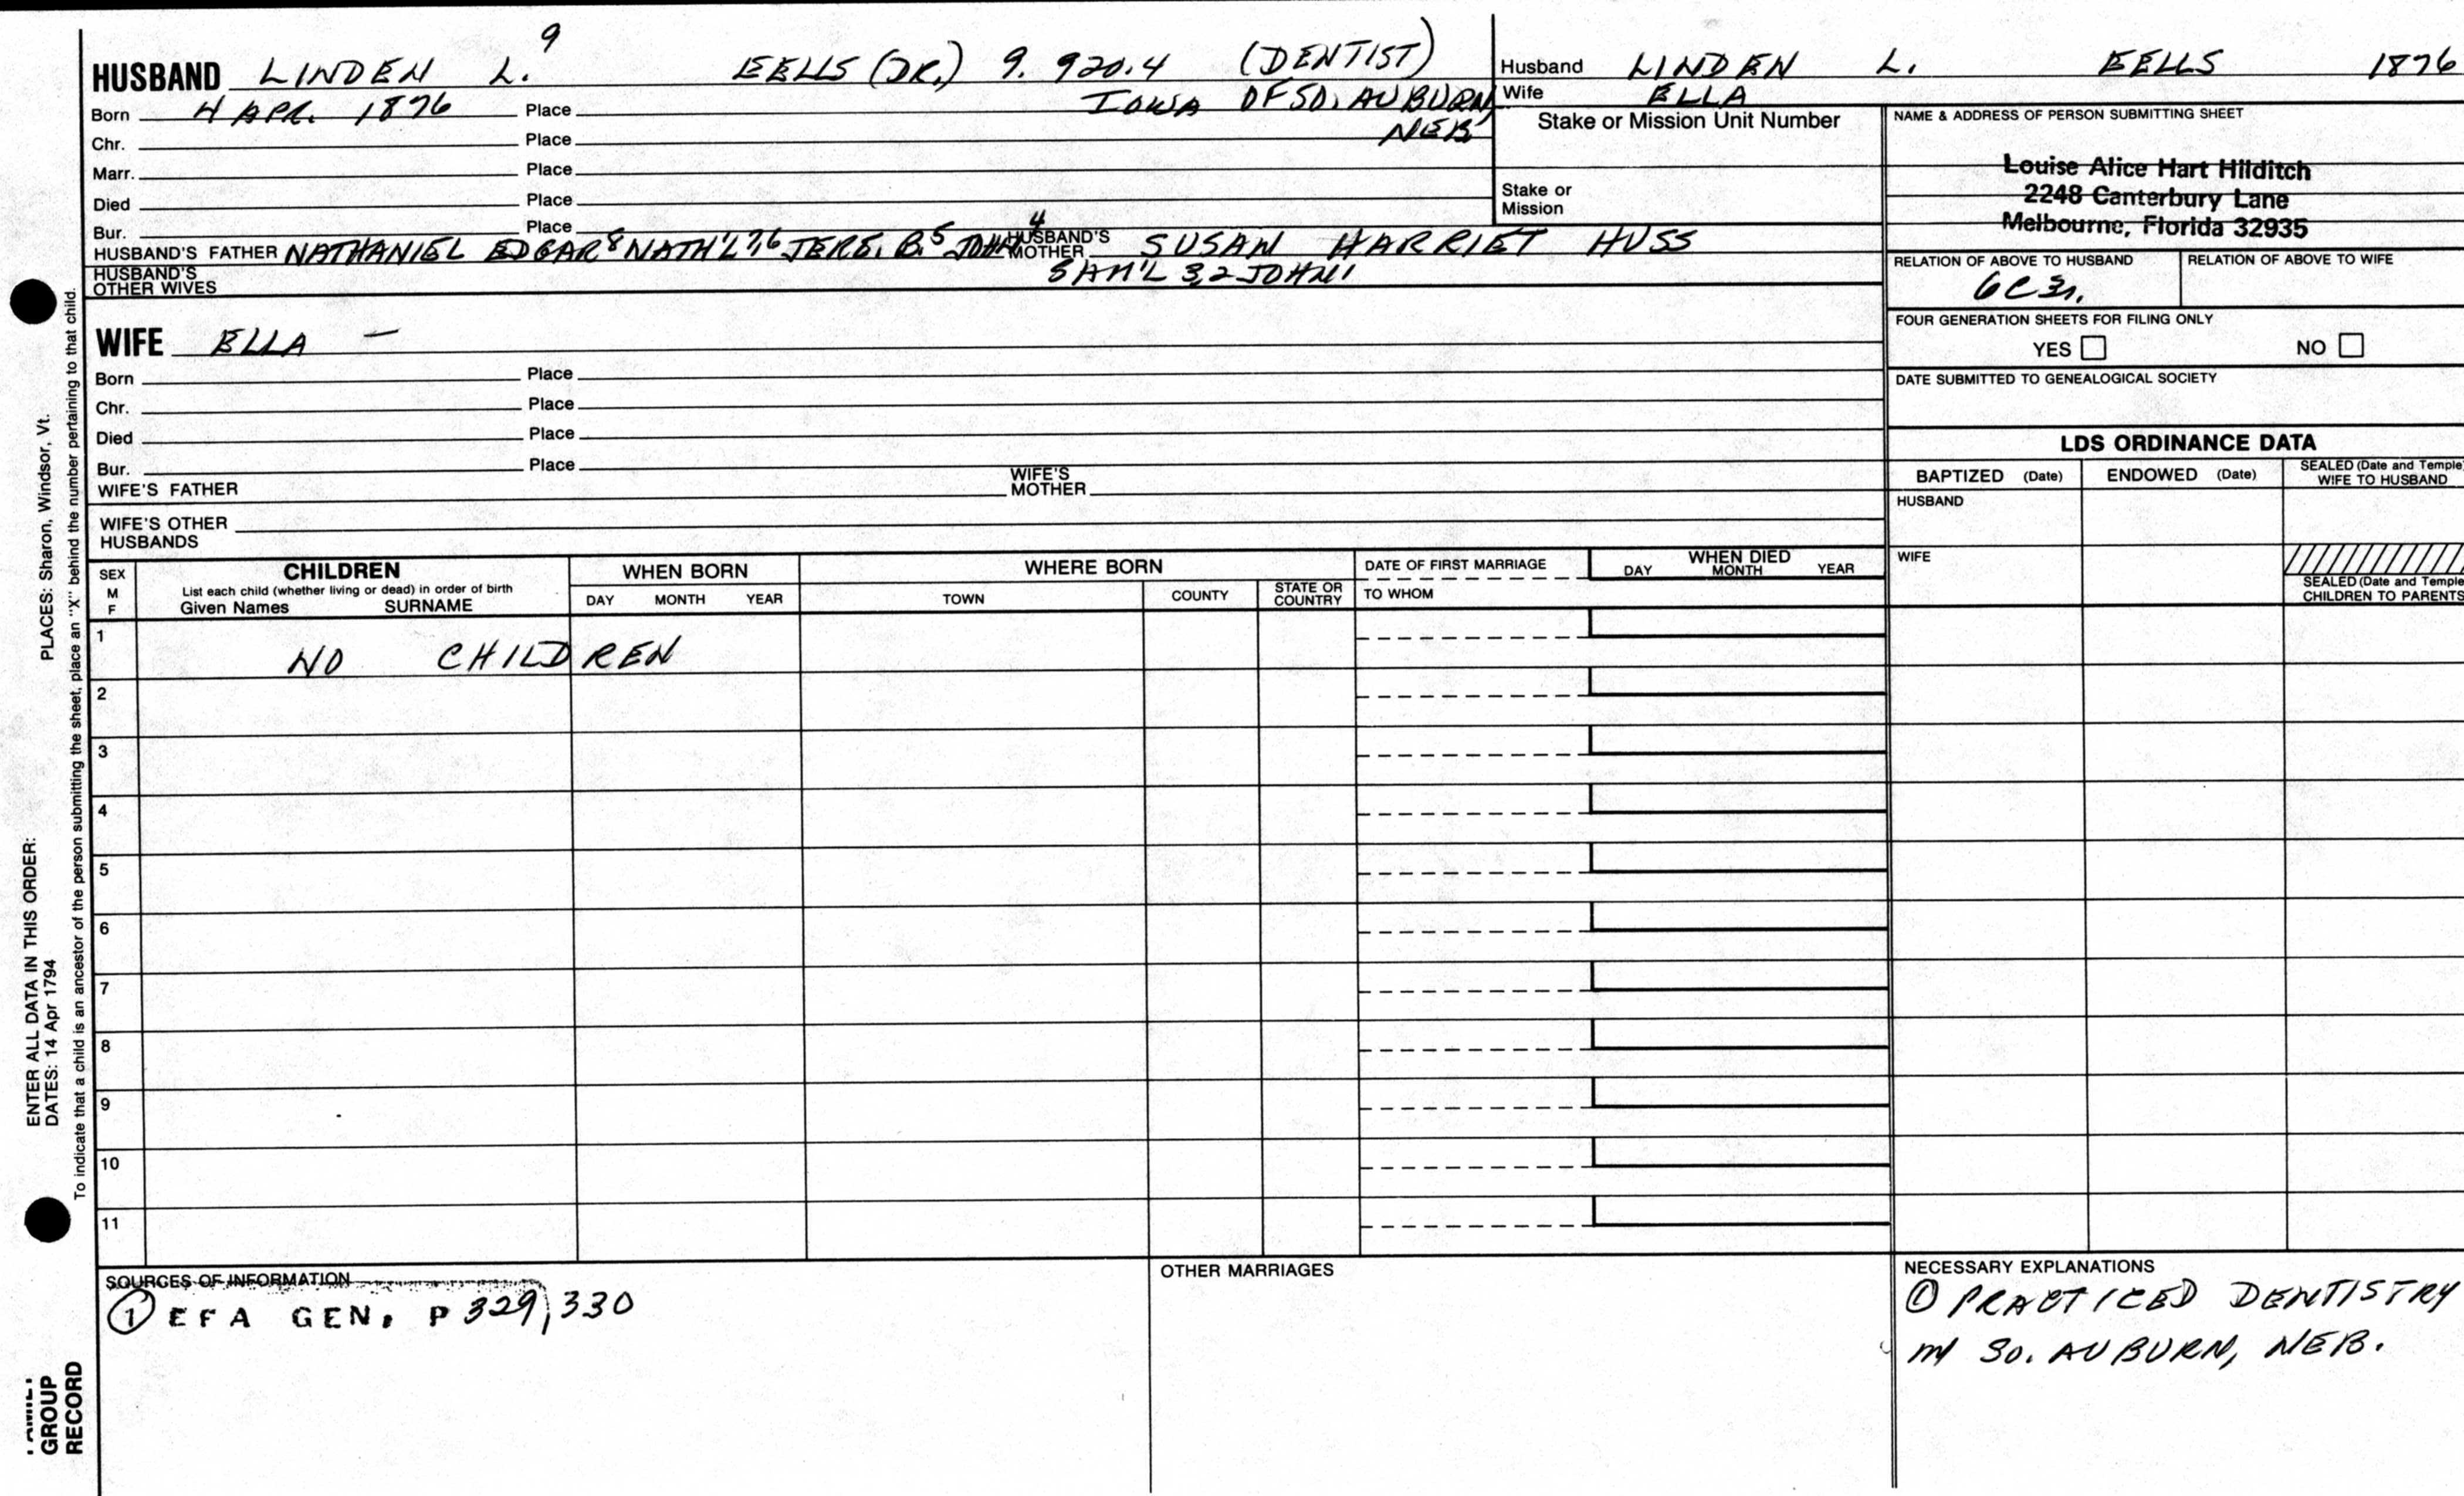 HUSBAND LINDEN L.9 EELLS (DR.) 9. 920.4 (DENTIST)
Born 4 APR. 1876 Place IOWA OF SO. AUBURN,
NEB
Chr. Place
Marr. Place
Died Place
Bur. Place
HUSBAND'S FATHER NATHANIEL EDGAR8 NATH'L7,6 JERE. B.5 JOHN4 HUSBAND'S MOTHER SUSAN HARRIET HUSS
SAM'L 3,2 JOHN1
HUSBAND'S
OTHER WIVES
WIFE ELLA —
Born Place
Chr. Place
Died Place
Bur. Place
WIFE'S FATHER WIFE'S MOTHER
WIFE'S OTHER
HUSBANDS
Husband LINDEN L. EELLS 1876
Wife ELLA
Stake or Mission Unit Number
Stake or
Mission
NAME & ADDRESS OF PERSON SUBMITTING SHEET
Louise Alice Hart Hilditch
2248 Canterbury Lane
Melbourne, Florida 32935
RELATION OF ABOVE TO HUSBAND RELATION OF ABOVE TO WIFE
FOUR GENERATION SHEETS FOR FILING ONLY
YES NO
DATE SUBMITTED TO GENEALOGICAL SOCIETY
LDS ORDINANCE DATA
BAPTIZED (Date) ENDOWED (Date) SEALED (Date and Temple)
WIFE TO HUSBAND
HUSBAND
WIFE
SEALED (Date and Temple)
CHILDREN TO PARENTS
SEX
M
F
CHILDREN
List each child (whether living or dead) in order of birth
Given Names SURNAME
WHEN BORN
DAY MONTH YEAR
WHERE BORN
TOWN COUNTY STATE OR
COUNTRY
DATE OF FIRST MARRIAGE
TO WHOM
WHEN DIED
DAY MONTH YEAR
1 NO CHILDREN
2
3
4
5
6
7
8
9
10
11
SOURCES OF INFORMATION
① EFA GEN. P 329, 330
OTHER MARRIAGES
NECESSARY EXPLANATIONS
① PRACTICED DENTISTRY
IN SO. AUBURN, NEB.
ENTER ALL DATA IN THIS ORDER:
DATES: 14 Apr 1794 PLACES: Sharon, Windsor, Vt.
To indicate that a child is an ancestor of the person submitting the sheet, place an "X" behind the number pertaining to that child.
GROUP
RECORD